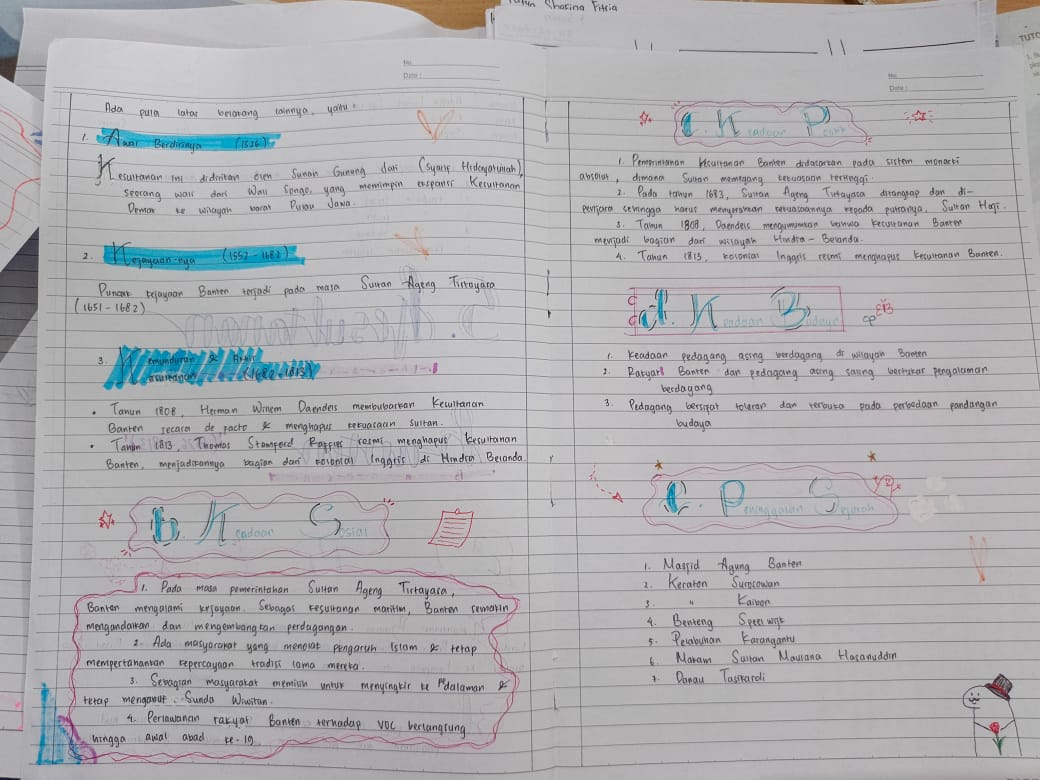 Fitria
No.
Date:
Ada pula latar belakang lainnya, yaitu:
1. Awal Berdirinya (1526)
Kesultanan ini didirikan oleh Sunan Gunung Jati (Syarif Hidayatullah),
seorang wali dari Wali Songo, yang memimpin ekspansi Kesultanan
Demak ke wilayah barat Pulau Jawa.
2. Kejayaan-nya (1552 - 1682)
Puncak kejayaan Banten terjadi pada masa Sultan Ageng Tirtayasa
(1651 - 1682)
3. Kemunduran & Akhir
Kesultanan (1682 - 1813)
• Tahun 1808, Herman Willem Daendels membubarkan Kesultanan
Banten secara de facto & menghapus kekuasaan sultan.
• Tahun 1813, Thomas Stamford Raffles resmi menghapus Kesultanan
Banten, menjadikannya bagian dari kolonial Inggris di Hindia Belanda.
b. Keadaan Sosial
1. Pada masa pemerintahan Sultan Ageng Tirtayasa,
Banten mengalami kejayaan. Sebagai kesultanan maritim, Banten semakin
mengandalkan dan mengembangkan perdagangan.
2. Ada masyarakat yang menolak pengaruh Islam & tetap
mempertahankan kepercayaan tradisi lama mereka.
3. Sebagian masyarakat memilih untuk menyingkir ke Pedalaman &
tetap menganut Sunda Wiwitan.
4. Perlawanan rakyat Banten terhadap VOC berlangsung
hingga awal abad ke-19
No.
Date:
c. Keadaan Politik
1. Pemerintahan Kesultanan Banten didasarkan pada sistem monarki
absolut, dimana Sultan memegang kekuasaan tertinggi.
2. Pada tahun 1683, Sultan Ageng Tirtayasa ditangkap dan di-
penjara sehingga harus menyerahkan kekuasaannya kepada putranya, Sultan Haji.
3. Tahun 1808, Daendels mengumumkan bahwa kesultanan Banten
menjadi bagian dari wilayah Hindia - Belanda.
4. Tahun 1813, kolonial Inggris resmi menghapus Kesultanan Banten.
d. Keadaan Budaya
1. Keadaan pedagang asing berdagang di wilayah Banten
2. Rakyat Banten dan pedagang asing saling bertukar pengalaman
berdagang
3. Pedagang bersifat toleran dan terbuka pada perbedaan pandangan
budaya
e. Peninggalan Sejarah
1. Masjid Agung Banten
2. Keraton Surosowan
3. " Kaibon
4. Benteng Speelwijk
5. Pelabuhan Karangantu
6. Makam Sultan Maulana Hasanuddin
7. Danau Tasikardi